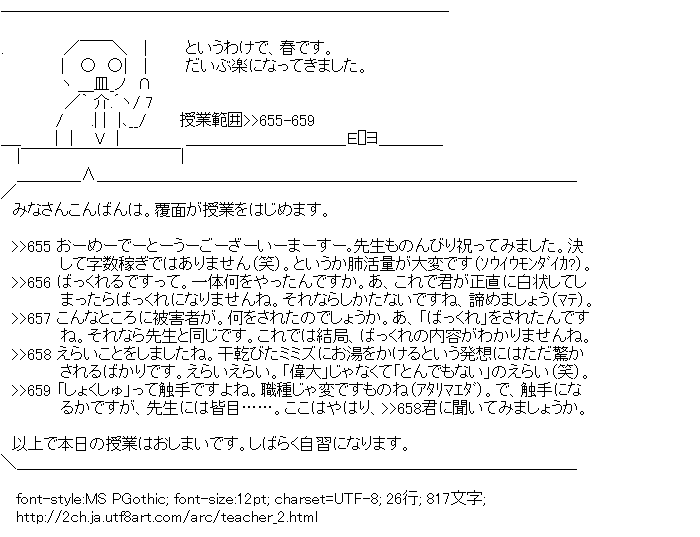 というわけで、春です。
だいぶ楽になってきました。
授業範囲>>655-659
みなさんこんばんは。覆面が授業をはじめます。
>>655 おーめーでーとーうーごーざーいーまーすー。先生ものんびり祝ってみました。決
して字数稼ぎではありません(笑)。というか肺活量が大変です(ｿｳｲｳﾓﾝﾀﾞｲｶ?)。
>>656 ばっくれるですって。一体何をやったんですか。あ、これで君が正直に白状してし
まったらばっくれになりませんね。それならしかたないですね、諦めましょう(ﾏﾃ)。
>>657 こんなところに被害者が。何をされたのでしょうか。あ、「ばっくれ」をされたんです
ね。それなら先生と同じです。これでは結局、ばっくれの内容がわかりませんね。
>>658 えらいことをしましたね。干乾びたミミズにお湯をかけるという発想にはただ驚か
されるばかりです。えらいえらい。「偉大」じゃなくて「とんでもない」のえらい(笑)。
>>659 「しょくしゅ」って触手ですよね。職種じゃ変ですものね(ｱﾀﾘﾏｴﾀﾞ)。で、触手にな
るかですが、先生には皆目……。ここはやはり、>>658君に聞いてみましょうか。
以上で本日の授業はおしまいです。しばらく自習になります。
font-style:MS PGothic; font-size:12pt; charset=UTF-8; 26行; 817文字;
http://2ch.ja.utf8art.com/arc/teacher_2.html